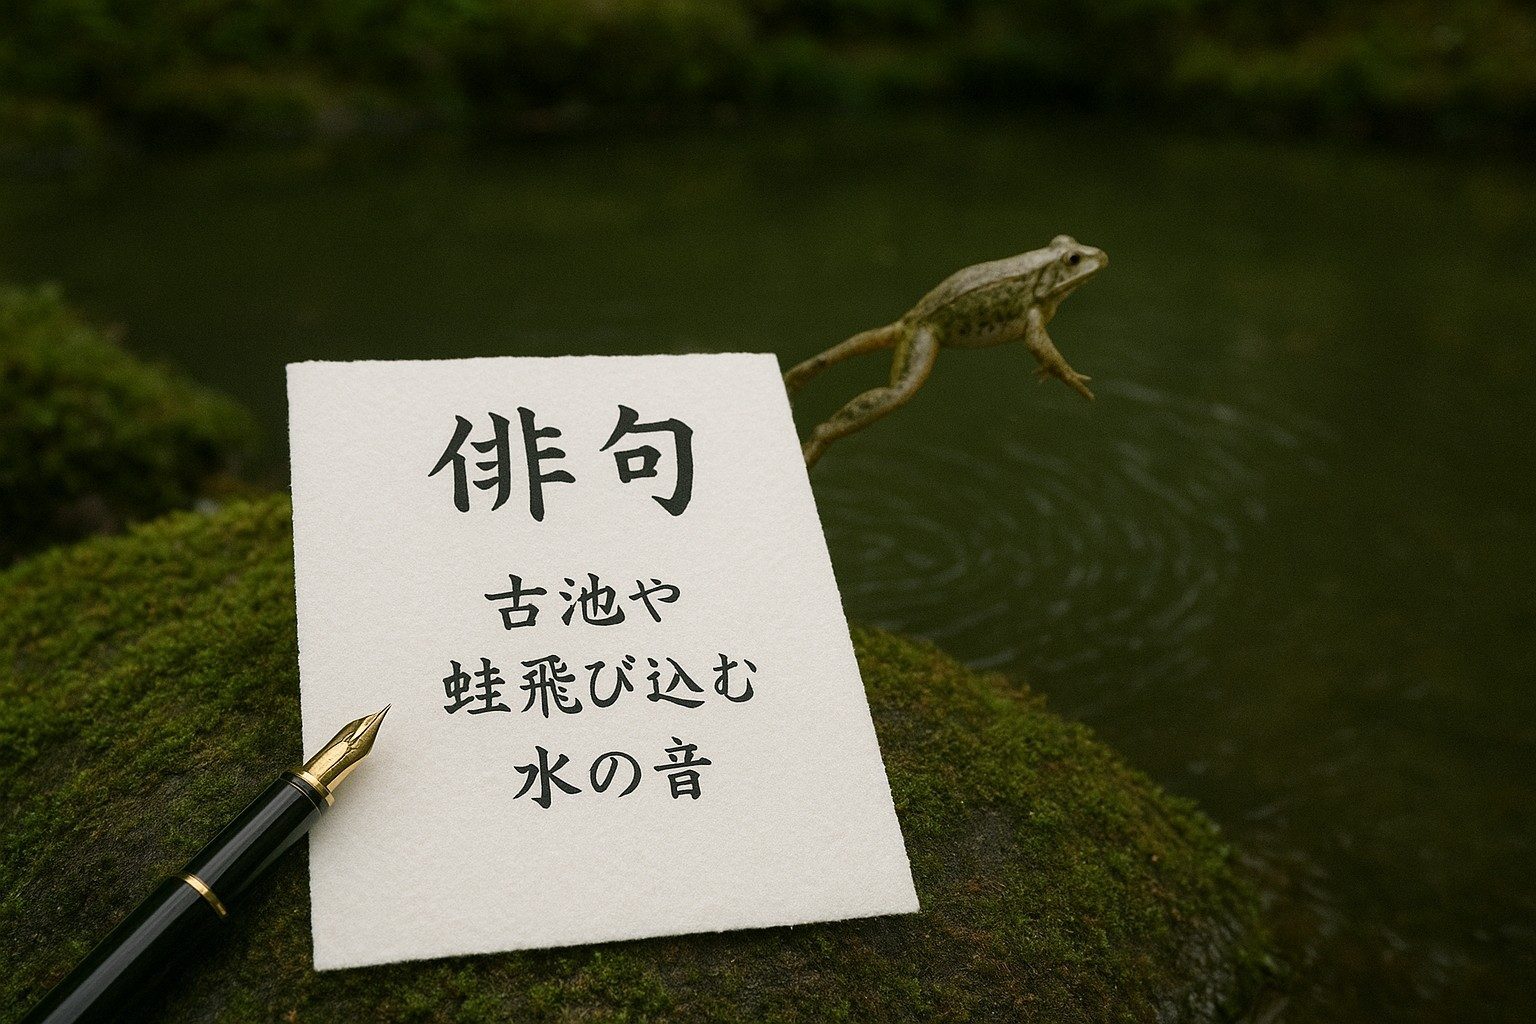 俳句
古池や
蛙飛び込む
水の音